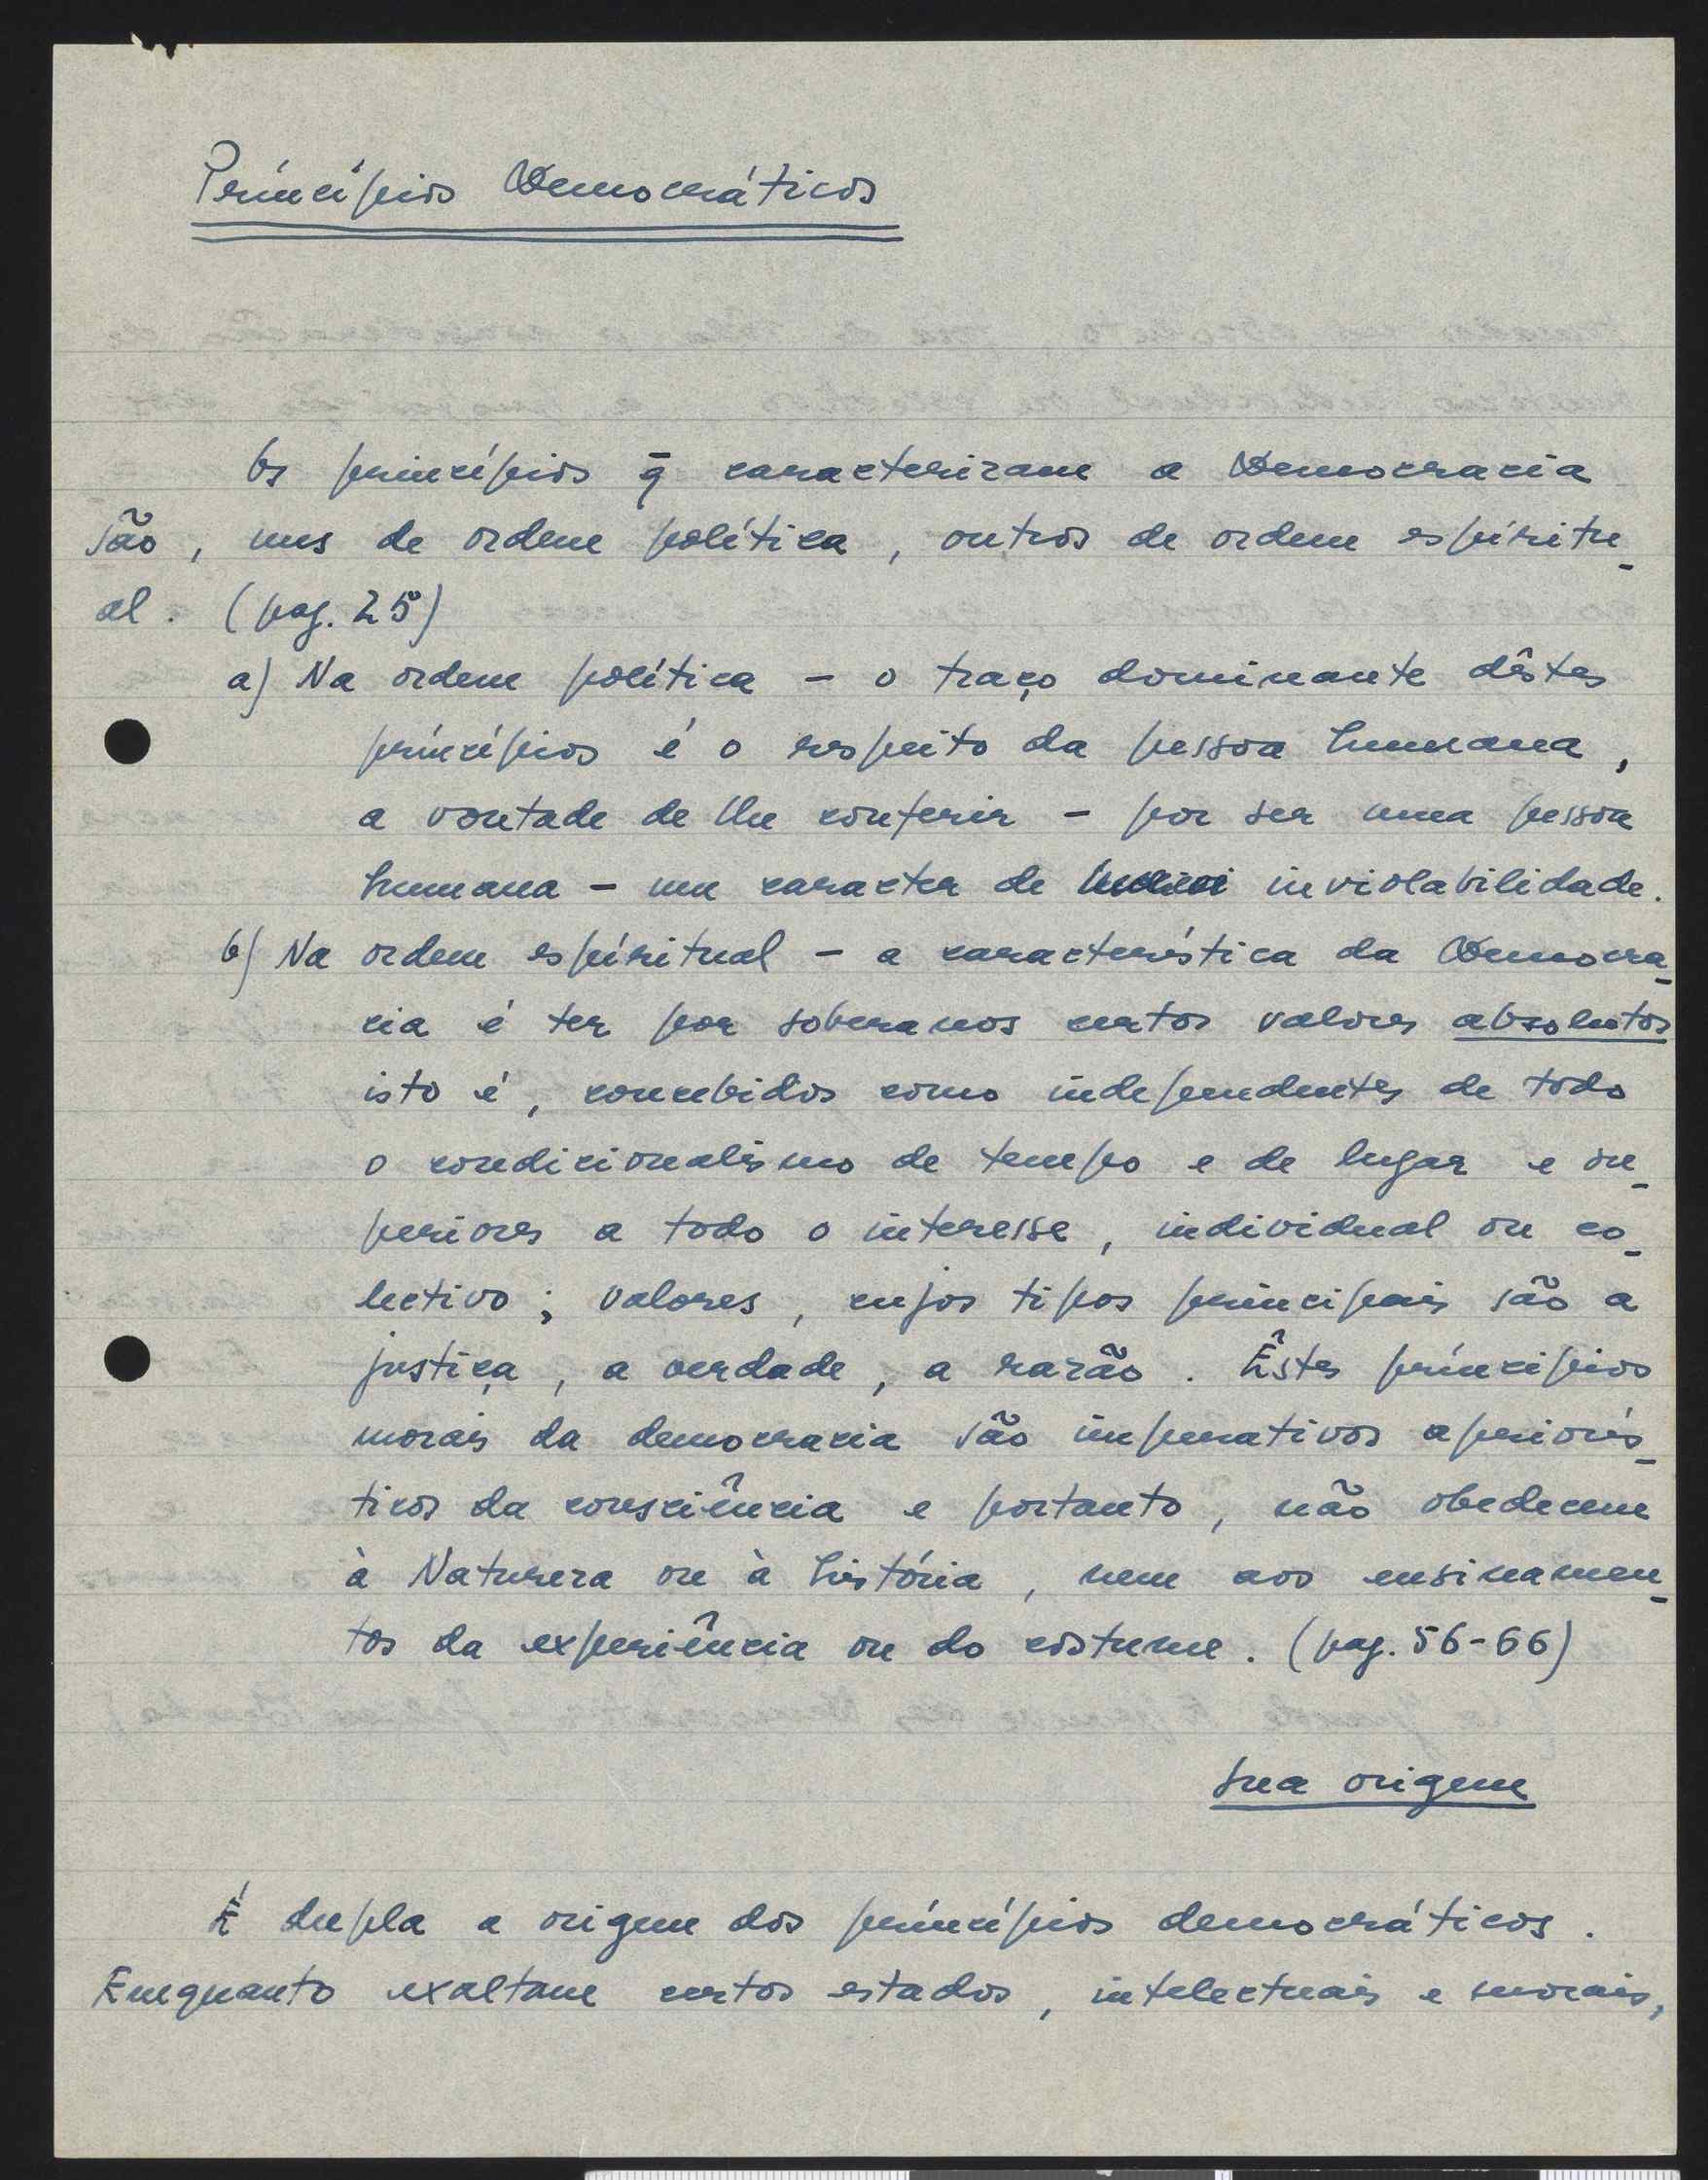 Princípios Democráticos
Os princípios q̄ caracterizam a Democracia
são, uns de ordem política, outros de ordem espiritu-
al. (pag. 25)
a) Na ordem política - o traço dominante dêstes
princípios é o respeito da pessoa humana,
a vontade de lhe conferir - por ser uma pessoa
humana - um caracter de inviolabilidade.
b) Na ordem espiritual - a característica da Democra-
cia é ter por soberanos certos valores absolutos
isto é, concebidos como independentes de todo
o condicionalismo de tempo e de lugar e su-
periores a todo o interesse, individual ou co-
lectivo; valores, cujos tipos principais são a
justiça, a verdade, a razão. Êstes princípios
morais da democracia são imperativos apriorís-
ticos da consciência e portanto, não obedecem
à Natureza ou à história, nem aos ensinamen-
tos da experiência ou do costume. (pag. 56-66)
Sua origem
É dupla a origem dos princípios democráticos.
Enquanto exaltam certos estados, intelectuais e morais,